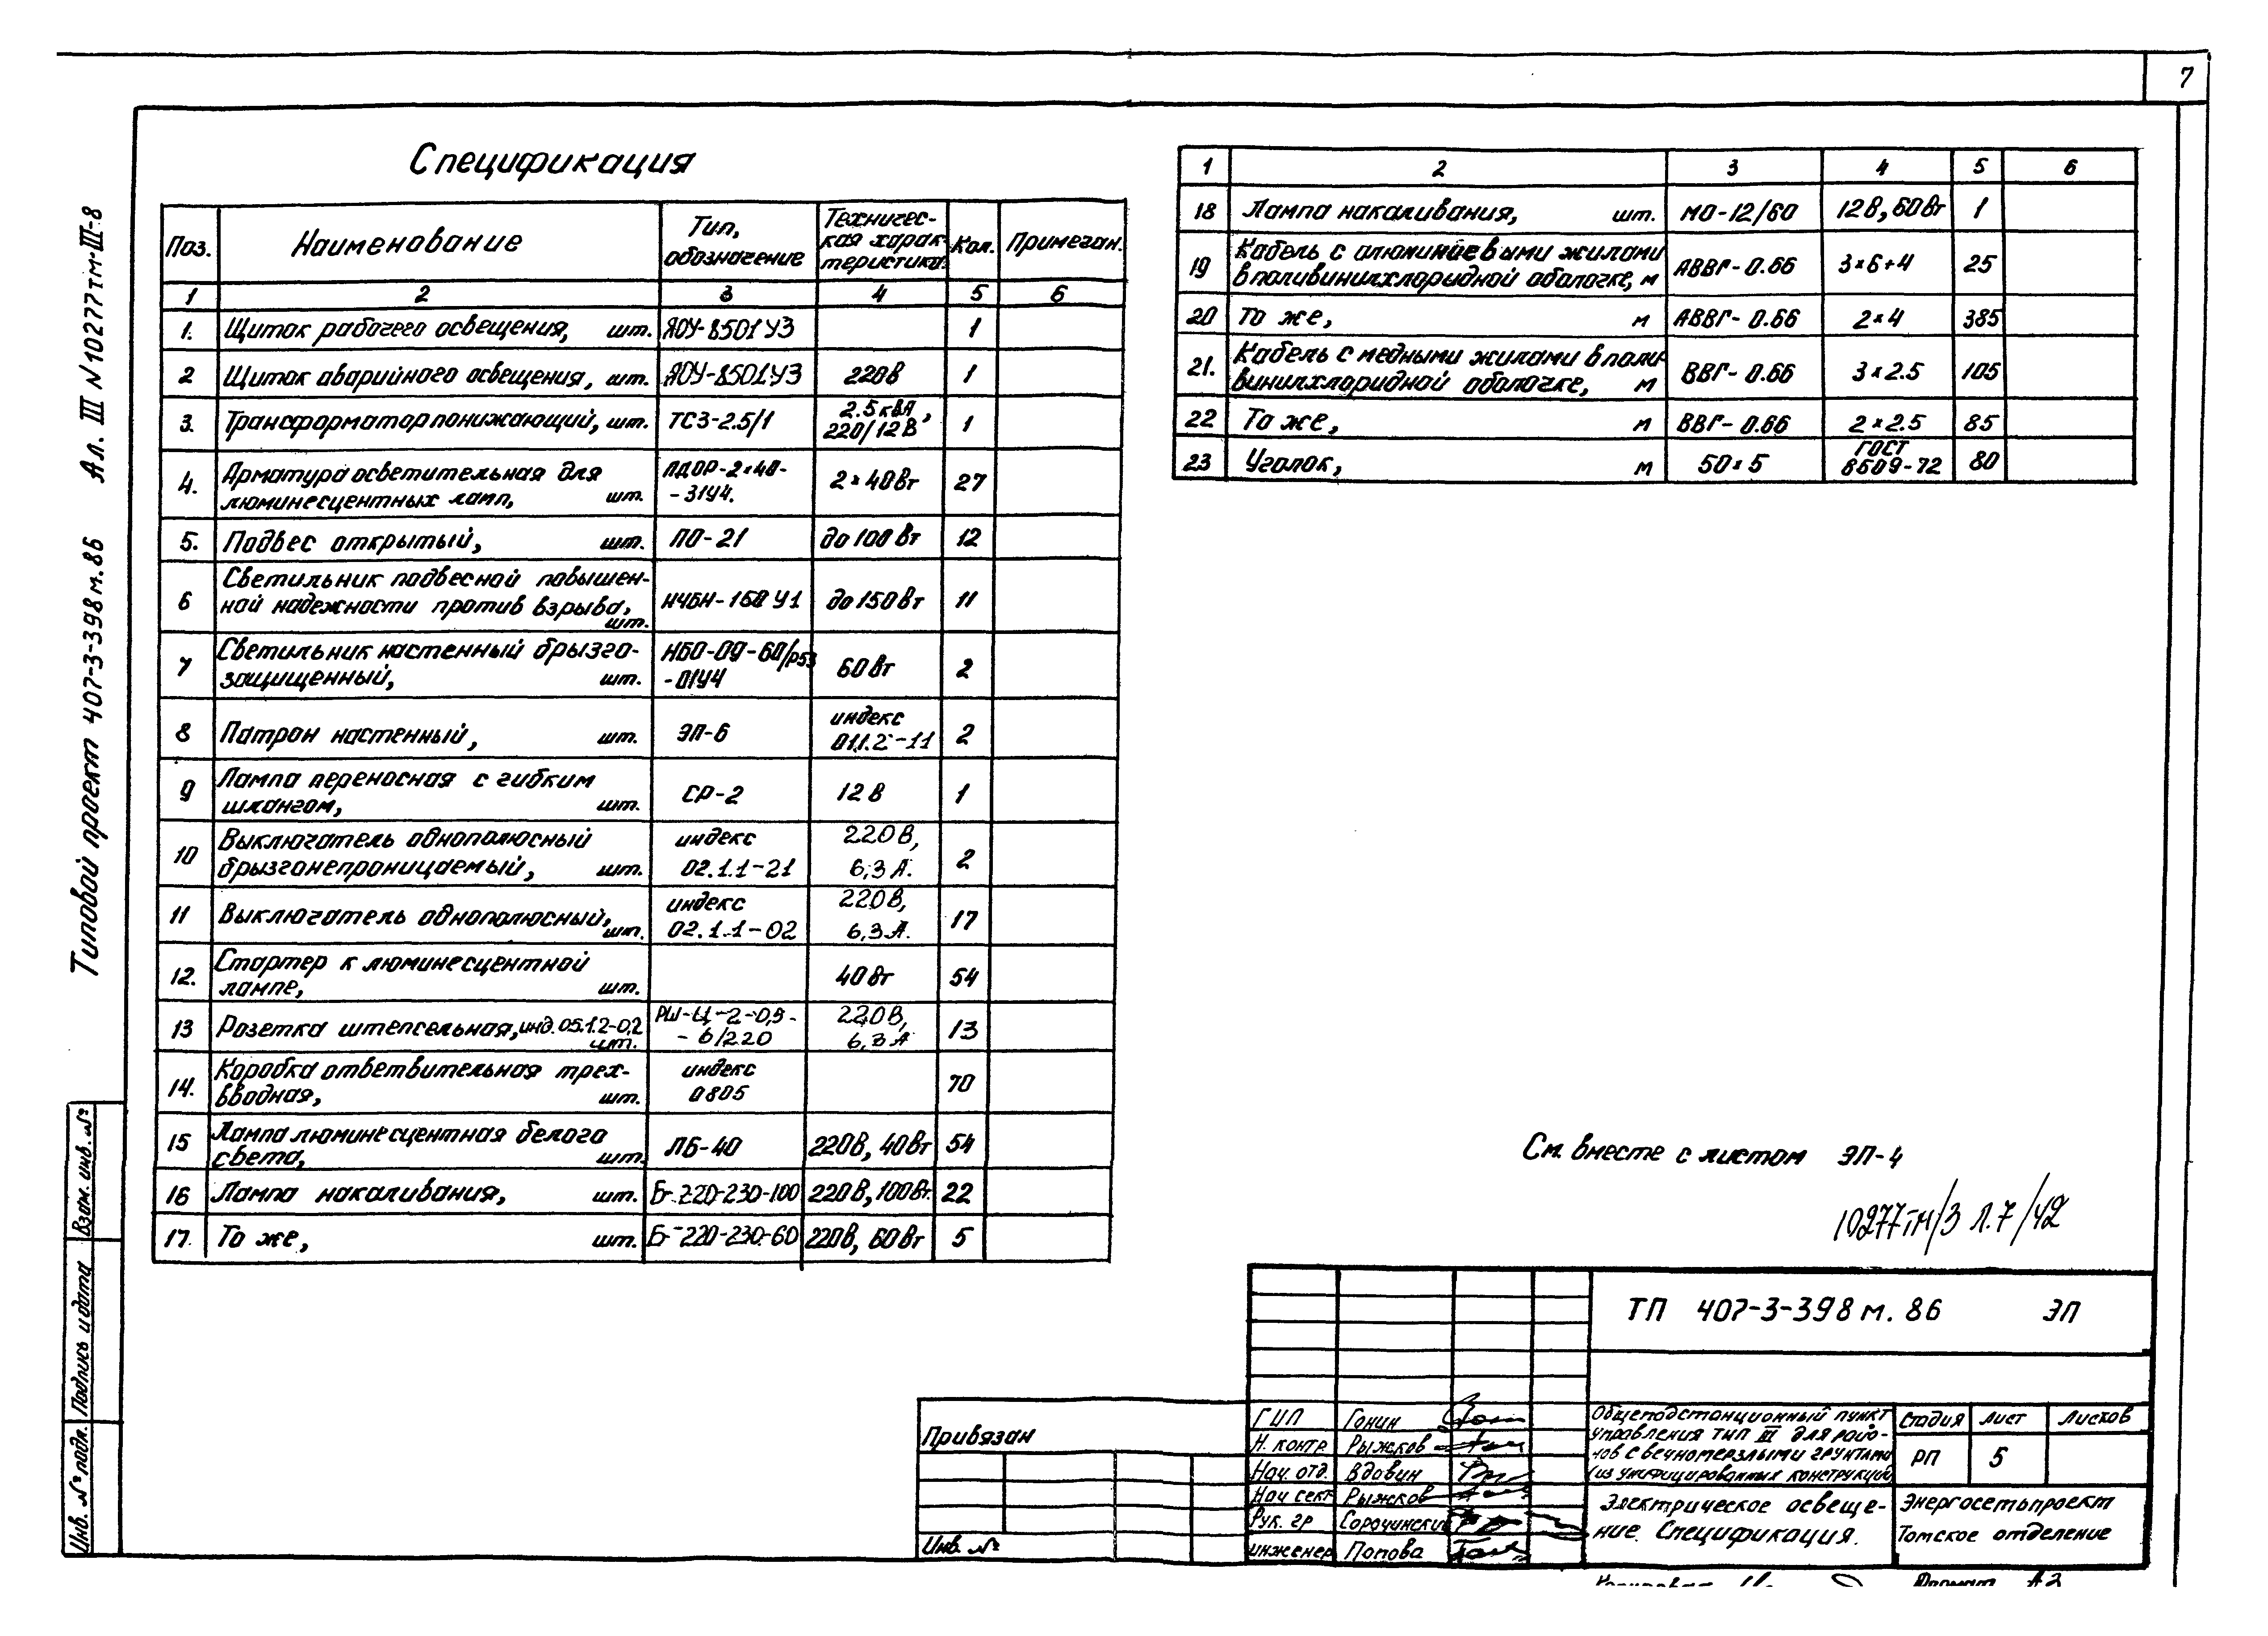 7
Спецификация
Поз. Наименование Тип, обозначение Техничес-кая харак-теристика Кол. Примечан.
1 2 3 4 5 6
1. Щиток рабочего освещения, шт. ЯОУ-8501У3 1
2 Щиток аварийного освещения, шт. ЯОУ-8501У3 220В 1
3. Трансформатор понижающий, шт. ТСЗ-2.5/1 2.5кВА, 220/12В 1
4. Арматура осветительная для
люминесцентных ламп, шт. ПДОР-2×40-
-31У4. 2×40Вт 27
5. Подвес открытый, шт. ПО-21 до 100Вт 12
6 Светильник подвесной повышен-
ной надежности против взрыва,
шт. Н4БН-150У1 до 150Вт 11
7 Светильник настенный брызго-
защищенный, шт. НБО-09-60/Р53
-01У4 60Вт 2
8 Патрон настенный, шт. ЭП-6 индекс
01.1.2-11 2
9 Лампа переносная с гибким
шлангом, шт. СР-2 12В 1
10 Выключатель однополюсный
брызгонепроницаемый, шт. индекс
02.1.1-21 220В,
6,3А. 2
11 Выключатель однополюсный, шт. индекс
02.1.1-02 220В,
6,3А. 17
12. Стартер к люминесцентной
лампе, шт. 40Вт 54
13 Розетка штепсельная, инд.05.1.2-0,2
шт. РШ-Ц-2-0,5-
-6/220 220В,
6,3А 13
14. Коробка ответвительная трех-
вводная, шт. индекс
0805 70
15 Лампа люминесцентная белого
света, шт. ЛБ-40 220В, 40Вт 54
16 Лампа накаливания, шт. Б-220-230-100 220В, 100Вт. 22
17. То же, шт. Б-220-230-60 220В, 60Вт 5
1 2 3 4 5 6
18 Лампа накаливания, шт. МО-12/60 12В, 60Вт 1
19 Кабель с алюминиевыми жилами
в поливинилхлоридной оболочке, м АВВГ-0.66 3×6+4 25
20 То же, м АВВГ-0.66 2×4 385
21. Кабель с медными жилами в поли-
винилхлоридной оболочке, м ВВГ-0.66 3×2.5 105
22 То же, м ВВГ-0.66 2×2.5 85
23 Уголок, м 50×5 ГОСТ
8509-72 80
См. вместе с листом ЭП-4
10277тм/3 л.7/42
Типовой проект 407-3-398м.86 Ал. III N10277тм-III-8
Взам. инв. №
Подпись и дата
Инв. № подл.
Привязан
Инв. №
ТП 407-3-398м.86 ЭП
ГИП Гонин
Н. контр. Рыжков
Нач. отд. Вдовин
Нач сект. Рыжков
Рук. гр Сорочинский
инженер Попова
Общеподстанционный пункт
управления тип III для райо-
нов с вечномерзлыми грунтами
(из унифицированных конструкций)
Стадия Лист Листов
РП 5
Электрическое освеще-
ние. Спецификация.
Энергосетьпроект
Томское отделение
Формат А3